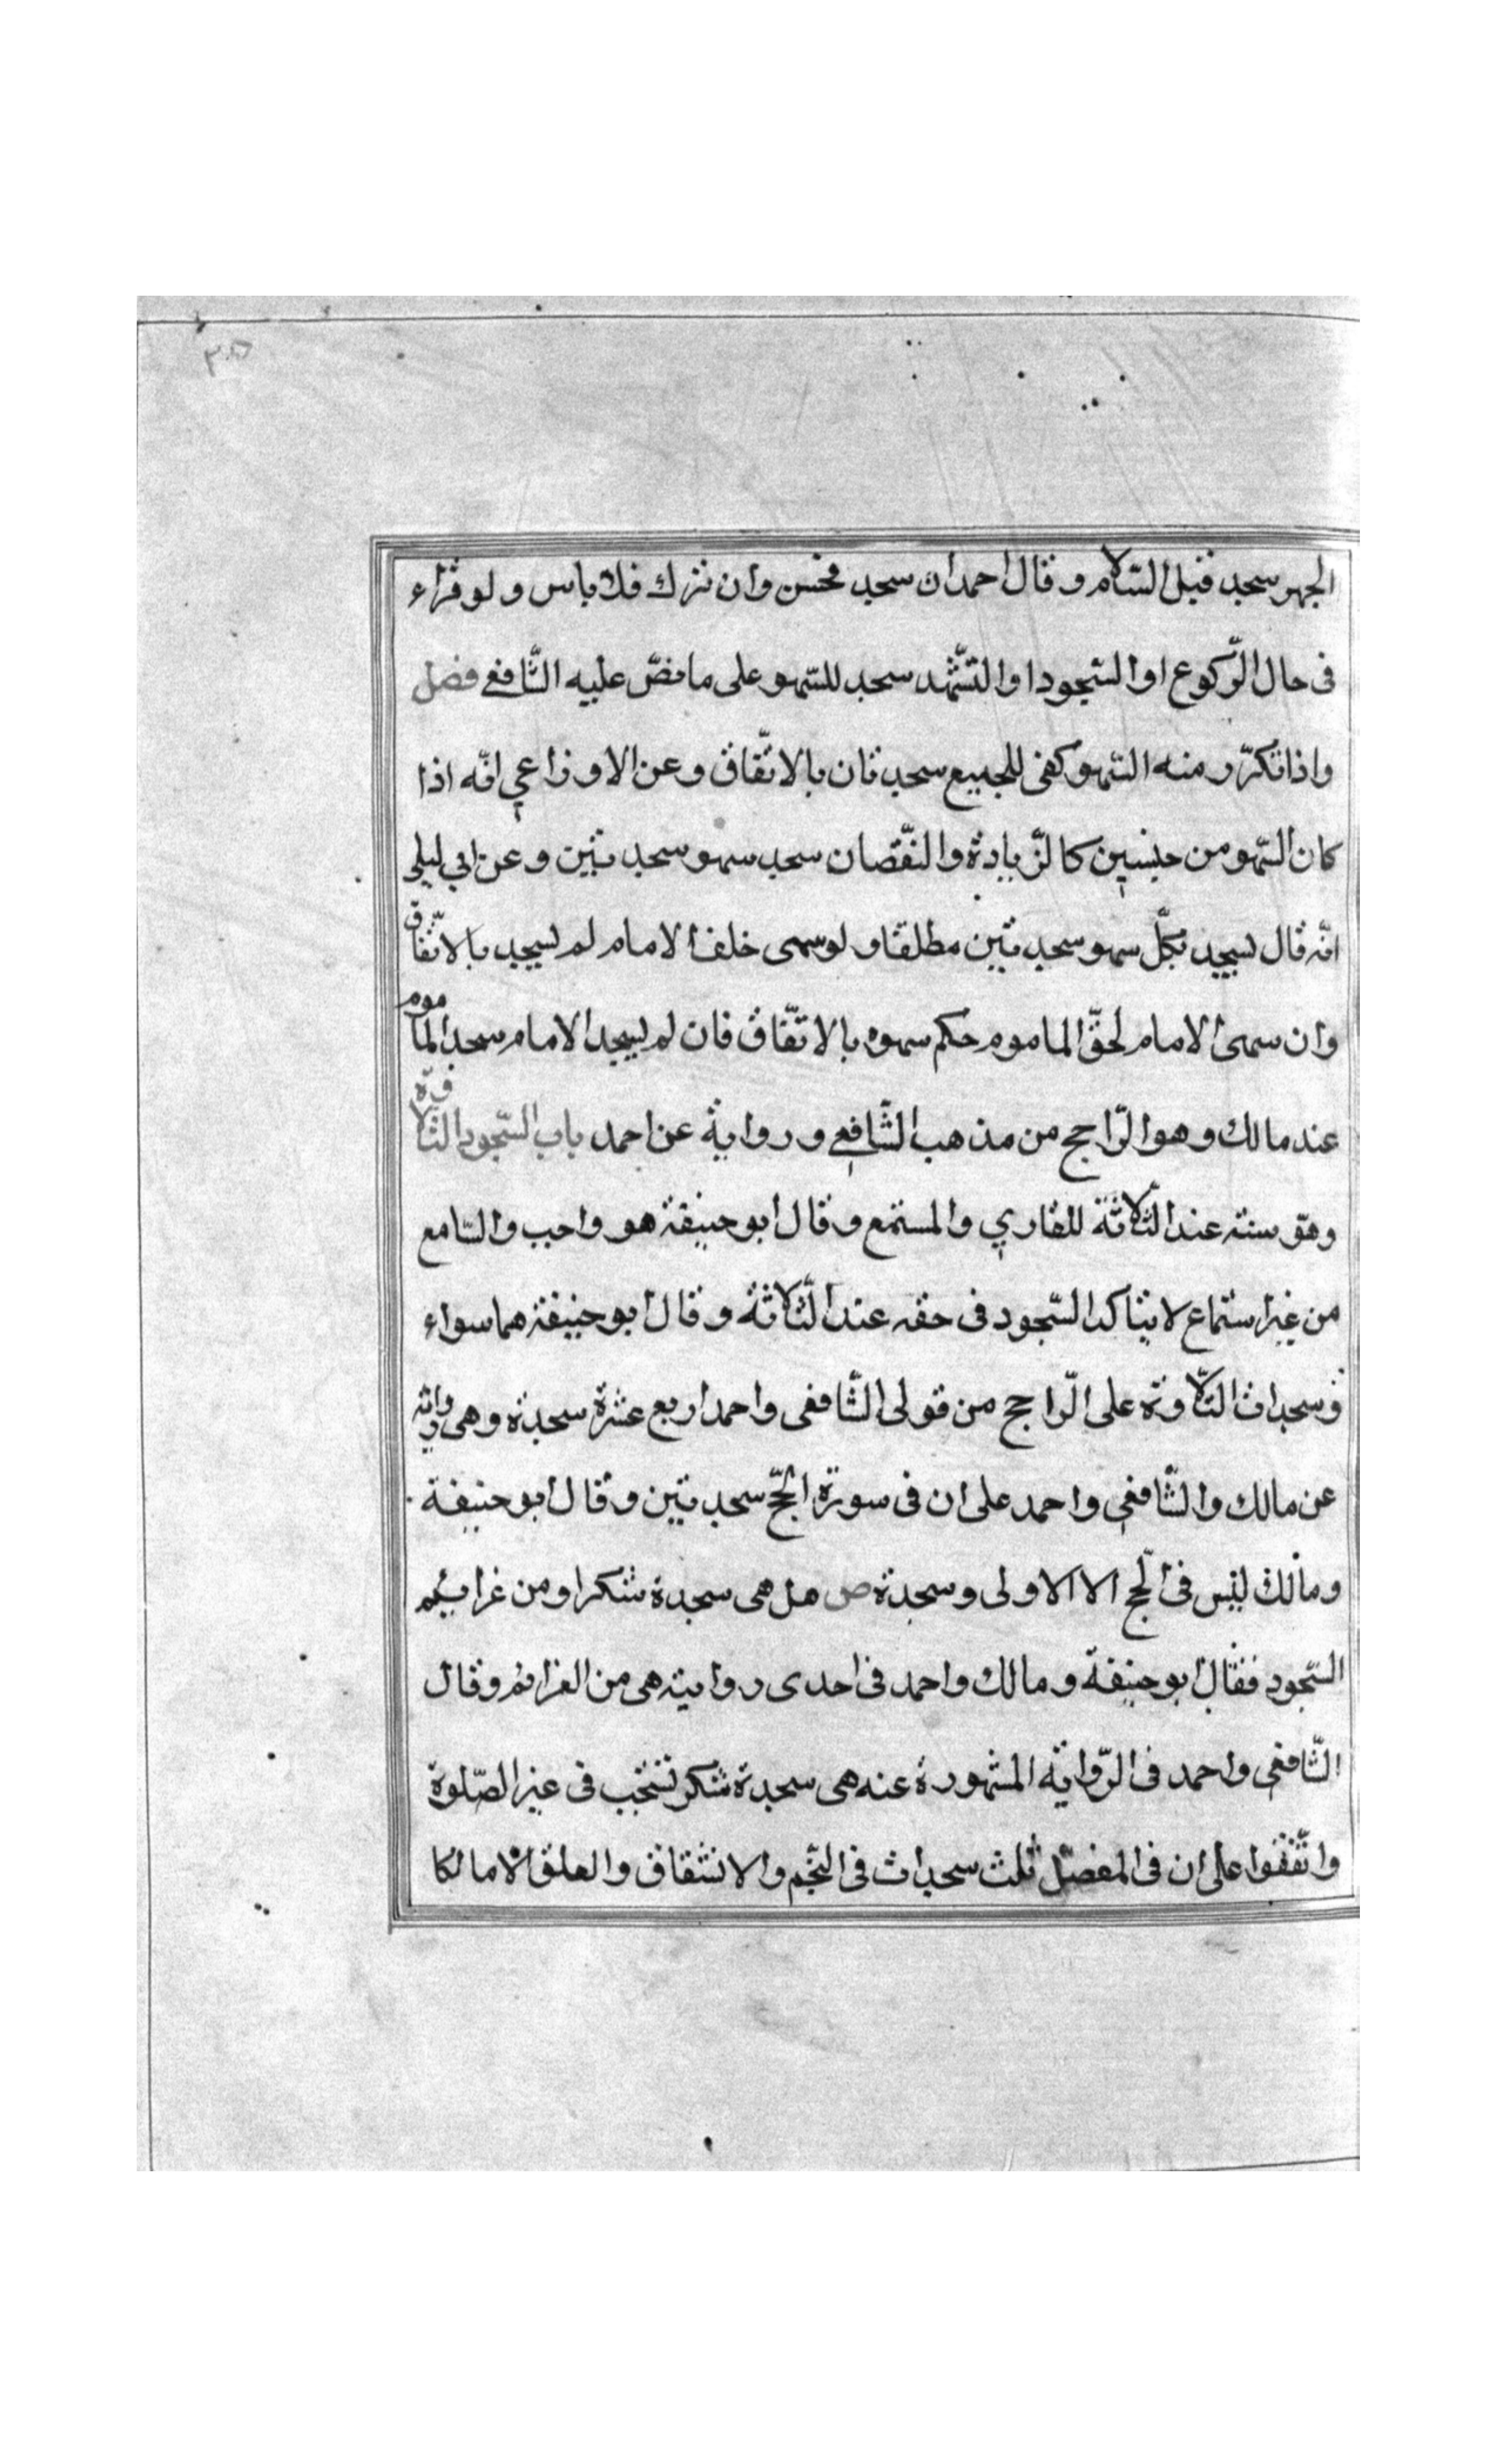 ٣٥
الجهر سجد قبل السّلام وقال احمد ان سجد فحسن وان ترك فلا باس ولو قراء
فى حال الرّكوع او السّجود او التشّهد سجد للسّهو على ما نصّ عليه الشّافعي فصل
واذا تكرّر منه السّهو كفى للجميع سجدتان بالاتّفاق وعن الاوزاعي انّه اذا
كان السّهو من جنسين كالزّيادة والنّقصان سجد سهو سجدتين وعن ابي ليلى
انّه قال يسجد بكلّ سهو سجدتين مطلقا ولو سهى خلف الامام لم يسجد بالاتّفاق
وان سهى الامام لحقّ الماموم حكم سهوه بالاتّفاق فان لم يسجد الامام سجد الماموم
عند مالك وهو الرّاجح من مذهب الشّافعي ورواية عن احمد باب السّجود التّلاوة
وهو سنته عند الثّلاثة للقاري والمستمع وقال ابو حنيفة هو واجب والسّامع
من غير استماع لا يتاكد السّجود فى حقه عند الثّلاثة وقال ابو حنيفة هما سواء
وسجدات التّلاوة على الرّاجح من قولى الشّافعى واحمد اربع عشرة سجدة وهى رواية
عن مالك والشّافعي واحمد على ان فى سورة الحجّ سجدتين وقال ابو حنيفة
ومالك ليس فى الحجّ الا الاولى وسجدة ص هل هى سجدة شكر او من غرايئم
السّجود فقال ابو حنيفة ومالك واحمد فى احدى روايته هى من العزائم وقال
الشّافعى واحمد فى الرّواية المشهورة عنه هى سجدة شكر تستحب فى غير الصّلوة
واتّفقوا على ان فى المفصّل ثلث سجدات فى النّجم والانشقاق والعلق الا مالكا